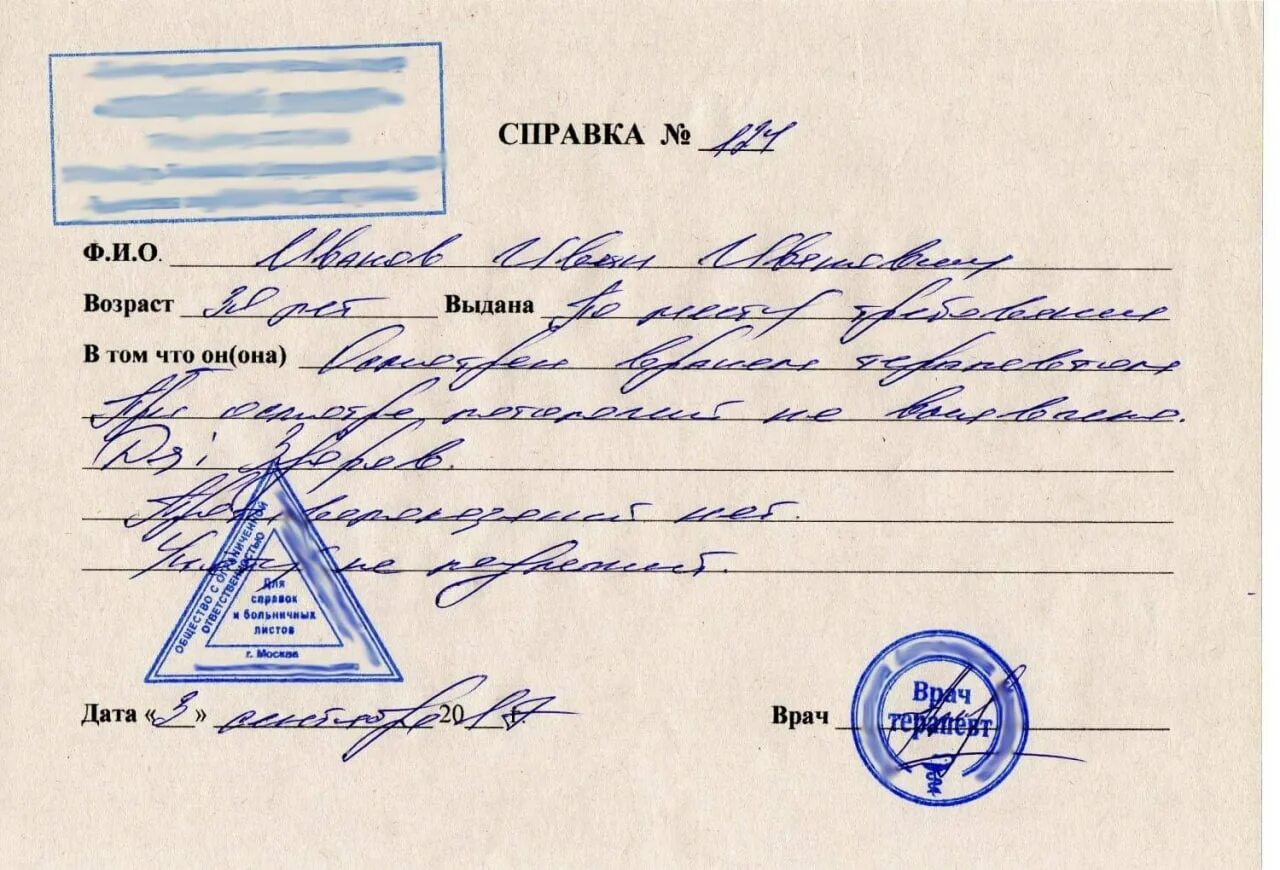 СПРАВКА № 124
Ф.И.О. Иванов Иван Иванович
Возраст 30 лет Выдана По месту требования
В том что он(она) Осмотрен врачом терапевтом
При осмотре патологий не выявлено.
Дз: Здоров.
Противопоказаний нет.
не
ОБЩЕСТВО С ОГРАНИЧЕННОЙ
ОТВЕТСТВЕННОСТЬЮ
Для
справок
и больничных
листов
г. Москва
Дата «3» сентября 2017 г.
Врач
Врач
терапевт